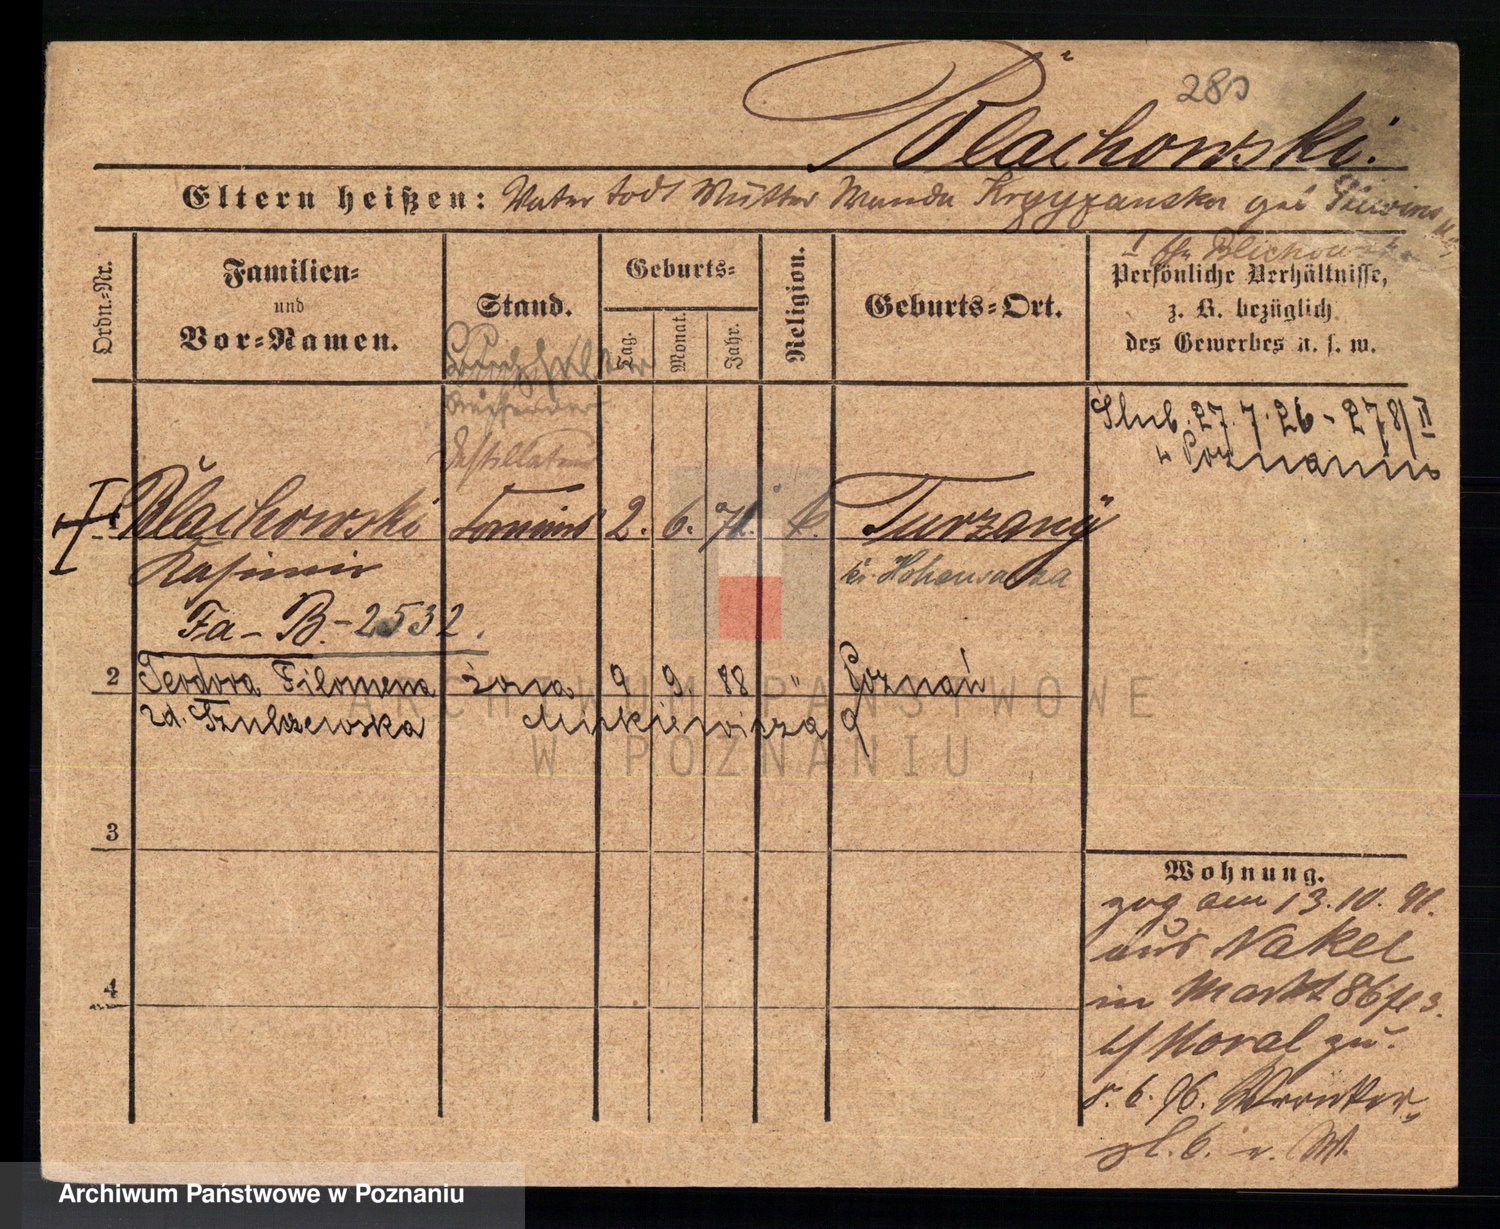 280
Blachowski.
Eltern heißen: Vater todt Mutter Wanda Krzyzanska geb
I
Ordn.-Nr.
Familien-
und
Vor-Namen.
Stand.
Geburts-
Tag.
Monat.
Jahr.
Religion.
Geburts-Ort.
Persönliche Verhältnisse,
z. B. bezüglich
des Gewerbes u. s. w.
Buchhalter
Destillateur
Ślub. 27. 7. 26 - 278/II
w Poznaniu
Blachowski Commis 2. 6. 71. k. Turzany
Kasimir
Kr. Hohensalza
Fa - B. - 2532.
2 Teodora Filomena żona 9 9. 88 " Poznań
zd. Szulczewska Mickiewicza 9
3
4
Wohnung.
zog am 13.10. 91.
aus Nakel
in Markt 86 3.
b/ Moral zu.
8. 6. 96. Wronker-
pl. 6. v. W.
ARCHIWUM PAŃSTWOWE
W POZNANIU
Archiwum Państwowe w Poznaniu